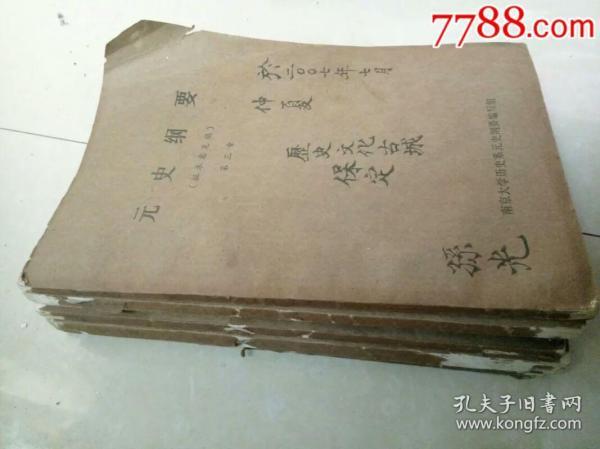 7788.com
元史纲要
(征求意见稿)
第三章
於二〇〇七年七月
仲夏
歷史文化古城
保定
南京大学历史系元史纲要编写组
孫光
孔夫子旧书网
www.kongfz.com